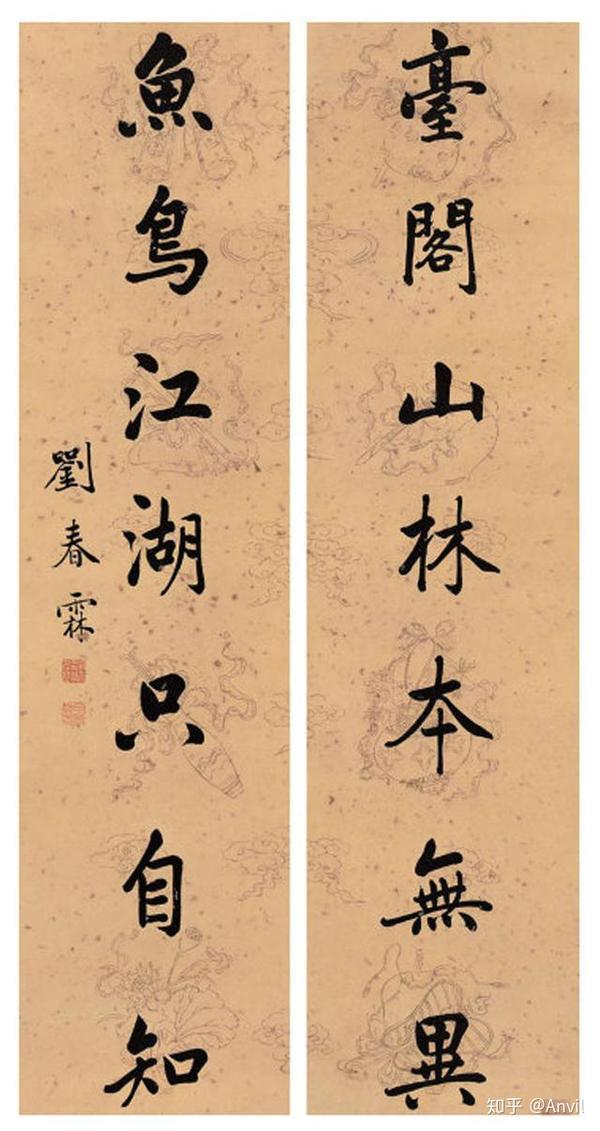 臺閣山林本無異
魚鳥江湖只自知
劉春霖
知乎 @Anvil